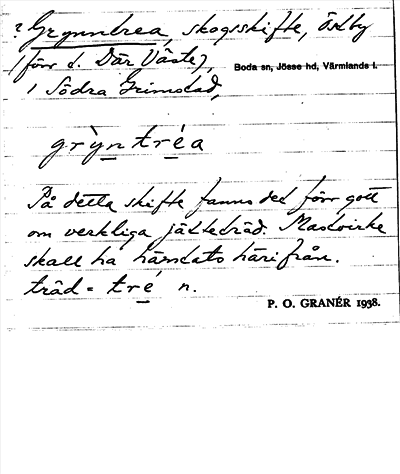 ? Grynntrea, skogsskifte, Östby
(förr t. Där Väste),
Boda sn, Jösse hd, Värmlands l.
i Södra Grimstad,
grỳntréa
På detta skifte fanns det förr gott
om verkliga jätteträd. Mastvirke
skall ha hämtats härifrån.
träd = tré n.
P. O. GRANÉR 1938.